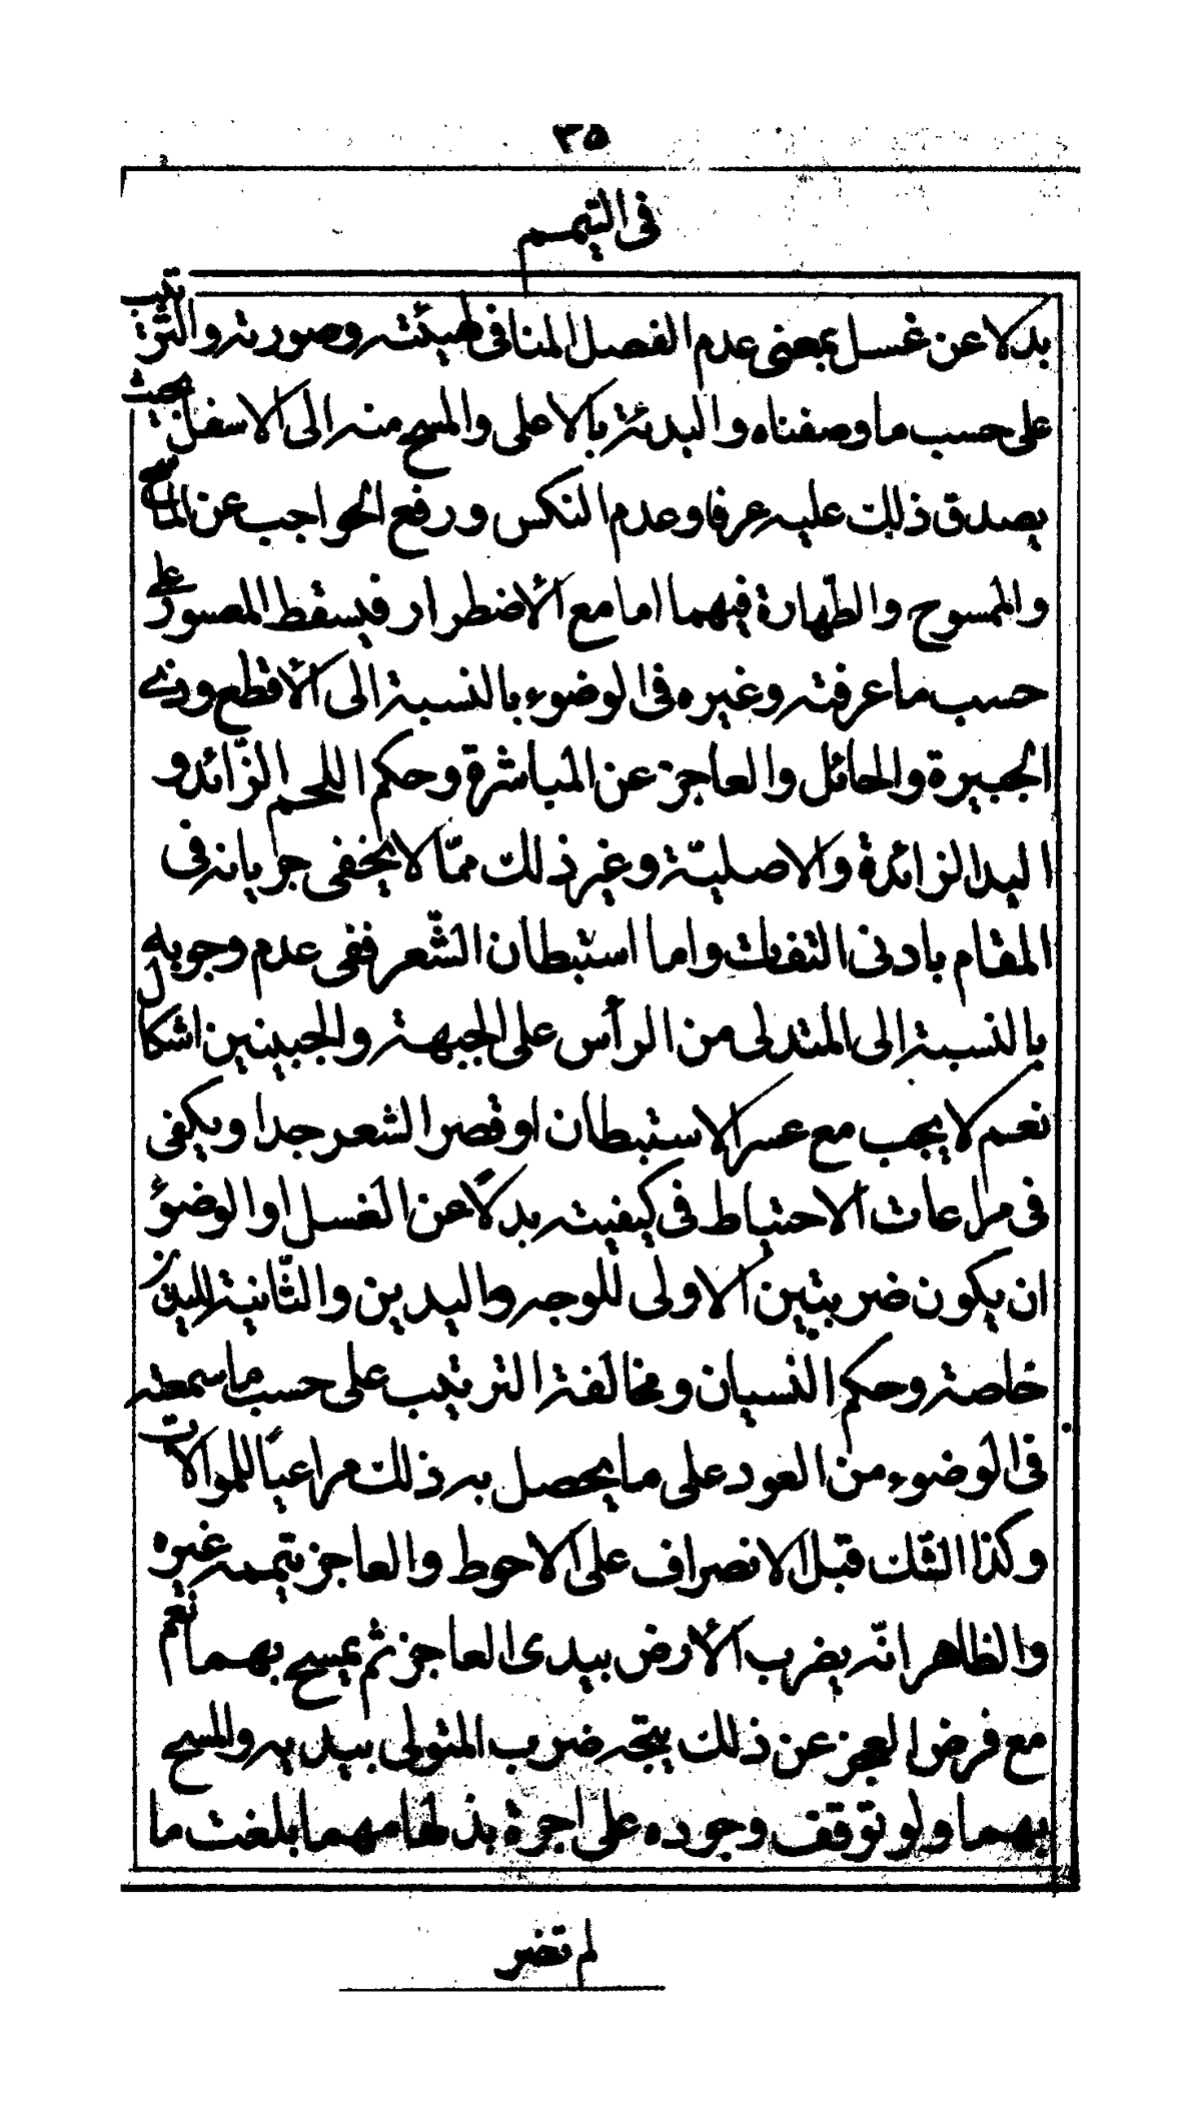 ٣٥
فى التيمم
بدلا عن غسل بمعنى عدم الفصل المنافى لهيئته وصورته والترتيب
على حسب ما وصفناه والبدئة بالاعلى والمسح منه الى الاسفل بحيث
يصدق ذلك عليه عرفا وعدم النكس ورفع الحواجب عن الماسح
والممسوح والطهارة فيهما اما مع الأضطرار فيسقط المعسور على
حسب ما عرفته وغيره فى الوضوء بالنسبة الى الأقطع وذى
الجبيرة والحائل والعاجز عن المباشرة وحكم اللحم الزّائد و
اليد الزائدة والاصليّة وغير ذلك ممّا لا يخفى جريانه فى
المقام بادنى التفات واما استبطان الشّعر ففى عدم وجوبه
بالنسبة الى المتدلى من الرأس على الجبهة والجبينين اشكال
نعم لا يجب مع عسر الاستبطان او قصر الشعر جدا ويكفى
فى مراعات الاحتياط فى كيفيته بدلًا عن الغسل او الوضوء
ان يكون ضربتين الاولى للوجه واليدين والثّانية لليدين
خاصة وحكم النسيان ومخالفة الترتيب على حسب ما سمعته
فى الوضوء من العود على ما يحصل به ذلك مراعيًا للموالات
وكذا الشّك قبل الانصراف على الاحوط والعاجز يتممه غيره
والظاهر انّه يضرب الأرض بيدى العاجز ثم يمسح بهما نعم
مع فرض العجز عن ذلك يتجه ضرب المتولى بيديه والمسح
بهما ولو توقف وجوده على اجرة بذلها مهما بلغت ما
لم تضر